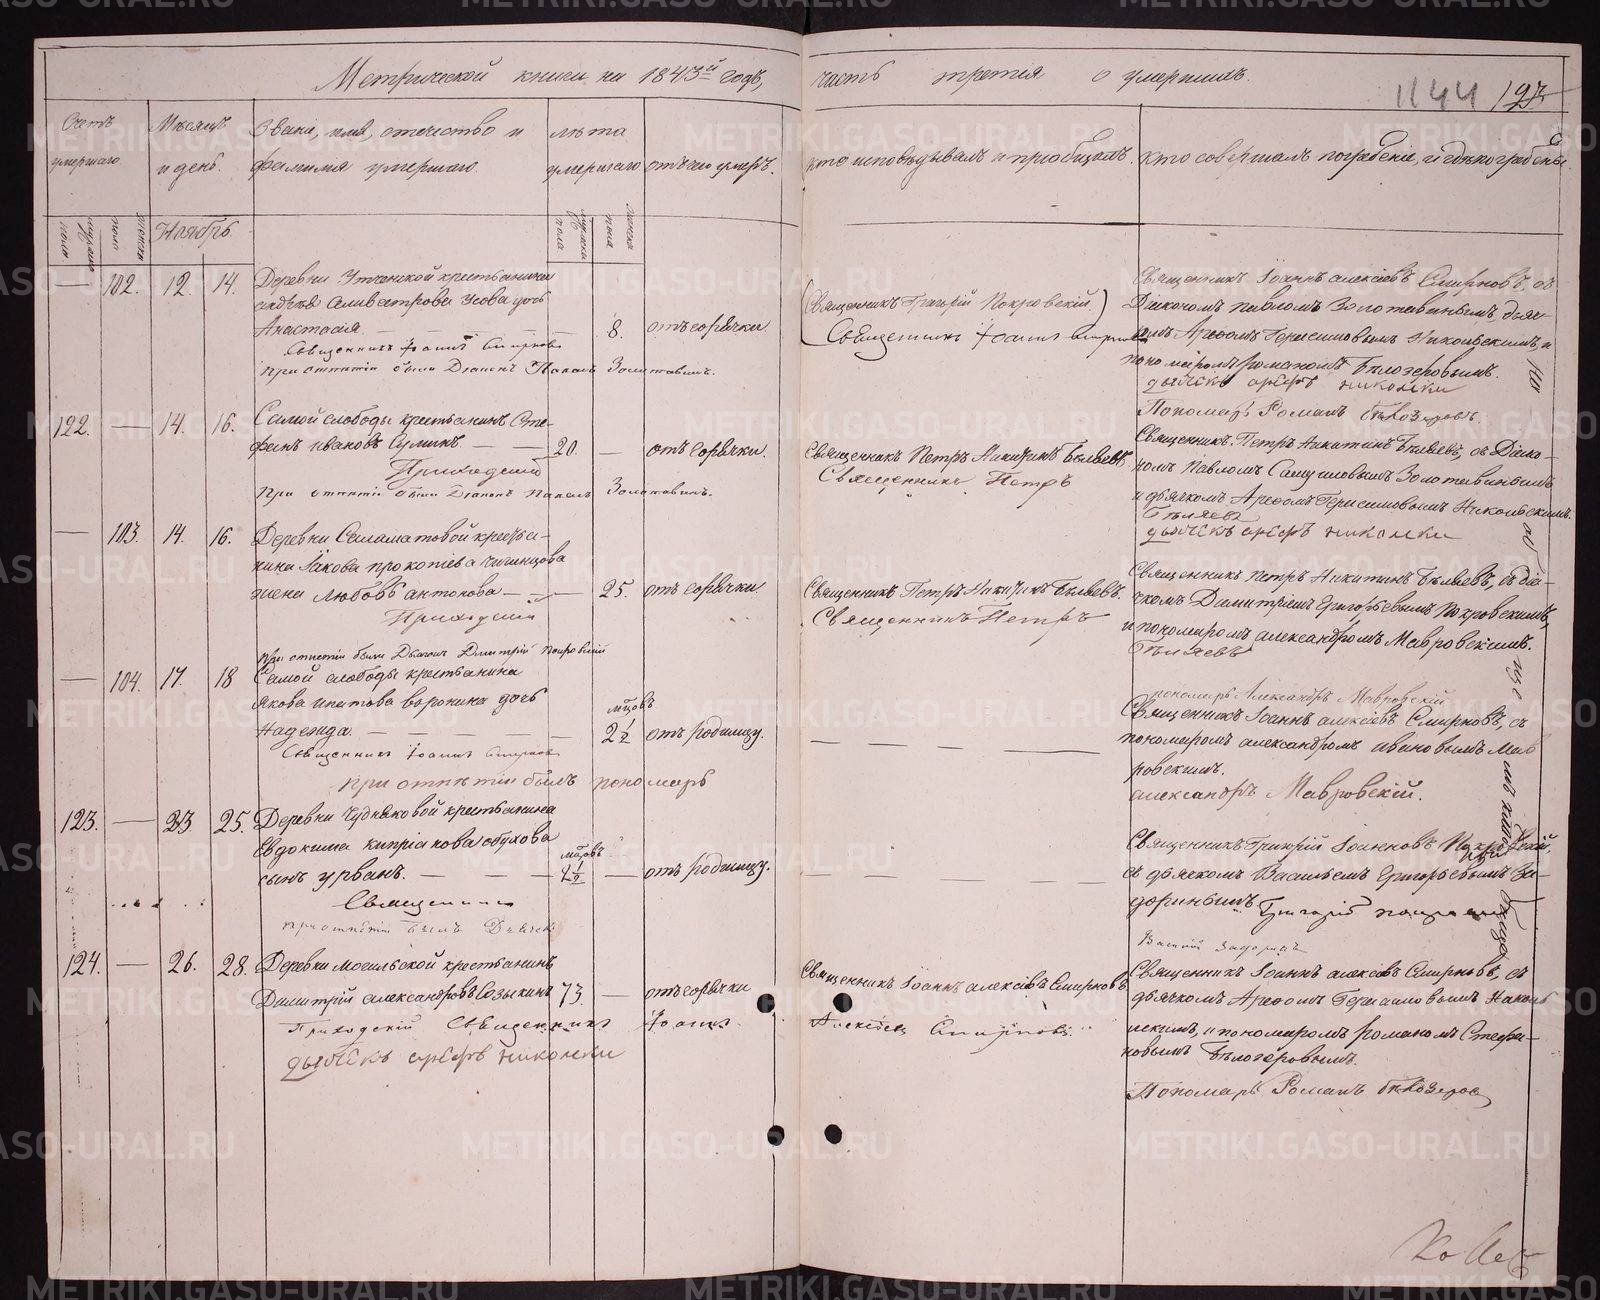 Метрической книги на 1843й годъ, часть третія о умершихъ.
1144 197
Счетъ умершаго
Мѣсяцъ и день.
Званіе, имя, отечество и фамилія умершаго.
лѣта умершаго
отъ чего умеръ.
кто исповѣдывалъ и пріобщалъ.
кто совершалъ погребеніе, и гдѣ погребены
Ноябрь
— 102. 12. 14. Деревни крестьянина
Селиверстрова Усова дочь
Анастасія — — — 8. отъ горячки
(Священникъ Григорій Покровскій)
Священникъ Іоаннъ Смирновъ
Священникъ Іоаннъ Смирновъ
при отпѣтіи были Діаконъ Павелъ Золотавинъ.
Священникъ Іоаннъ Алексіевъ Смирновъ, съ
Діакономъ Павломъ Золотавинымъ, дьяч-
комъ Арефомъ Герасимовымъ Никольскимъ, и
пономаремъ Романомъ Бѣлозеровымъ.
дьячекъ Арефъ
Пономарь Романъ Бѣлозеровъ
122. — 14. 16. Самой слободы крестьянинъ Сте-
фанъ Ивановъ Сулинъ — 20. — отъ горячки.
Приходскій
при отпѣтіи были Діаконъ Павелъ Золотавинъ.
Священникъ Петръ Никитинъ Бѣляевъ
Священникъ Петръ
Священникъ Петръ Никитинъ Бѣляевъ, съ Діако-
номъ Павломъ Самуиловымъ Золотавинымъ
и дьячкомъ Арефомъ Герасимовымъ Никольскимъ.
Бѣляевъ
дьячекъ Арефъ
— 103. 14. 16. Деревни Саламатовой крестья-
нина Іакова Прокопіева
жена Любовь Антонова — — 25. отъ горячки
Приходскій
при отпѣтіи были Дьячокъ Дмитрій Покровскій
Священникъ Петръ Никитинъ Бѣляевъ.
Священникъ Петръ
Священникъ Петръ Никитинъ Бѣляевъ, съ дья-
чкомъ Димитріемъ Григорьевымъ Покровскимъ,
и пономаремъ Александромъ Мавровскимъ.
Бѣляевъ
пономарь Александръ Мавровскій
— 104. 17. 18 Самой слободы крестьянина
Якова Ипатова Воронина дочь
Надежда. — — — мцовъ 2½ отъ родимцу.
Священникъ Іоаннъ Смирновъ
при отпѣтіи былъ пономарь
Священникъ Іоаннъ Алексіевъ Смирновъ, съ
пономаромъ Александромъ Ивановымъ Мав
ровскимъ.
Александръ Мавровскій.
123. — 23 25. Деревни Чудняковой крестьянина
Евдокима Кипріанова Обухова
сынъ Урванъ. — — — мцовъ 2½ — отъ родимцу.
Священникъ
при отпѣтіи былъ Дьячекъ
Священникъ Григорій Іоанновъ Покровскій,
съ дьячкомъ Васильемъ Григорьевымъ За-
доринымъ
Григорій
Василій Задоринъ
124. — 26. 28. Деревни Могильской крестьянинъ
Димитрій Александровъ Созыкинъ 73 — отъ горячки
Приходскій Священникъ Іоаннъ
дьячекъ Арефъ
Священникъ Іоаннъ Алексіевъ Смирновъ
Алексіевъ Смирновъ
Священникъ Іоаннъ Алексіевъ Смирновъ, съ
дьячкомъ Арефомъ Герасимовымъ Николь
искимъ, и пономаромъ Романомъ Стефа-
новымъ Бѣлозеровымъ.
Пономарь Романъ Бѣлозеровъ
METRIKI.GASO-URAL.RU